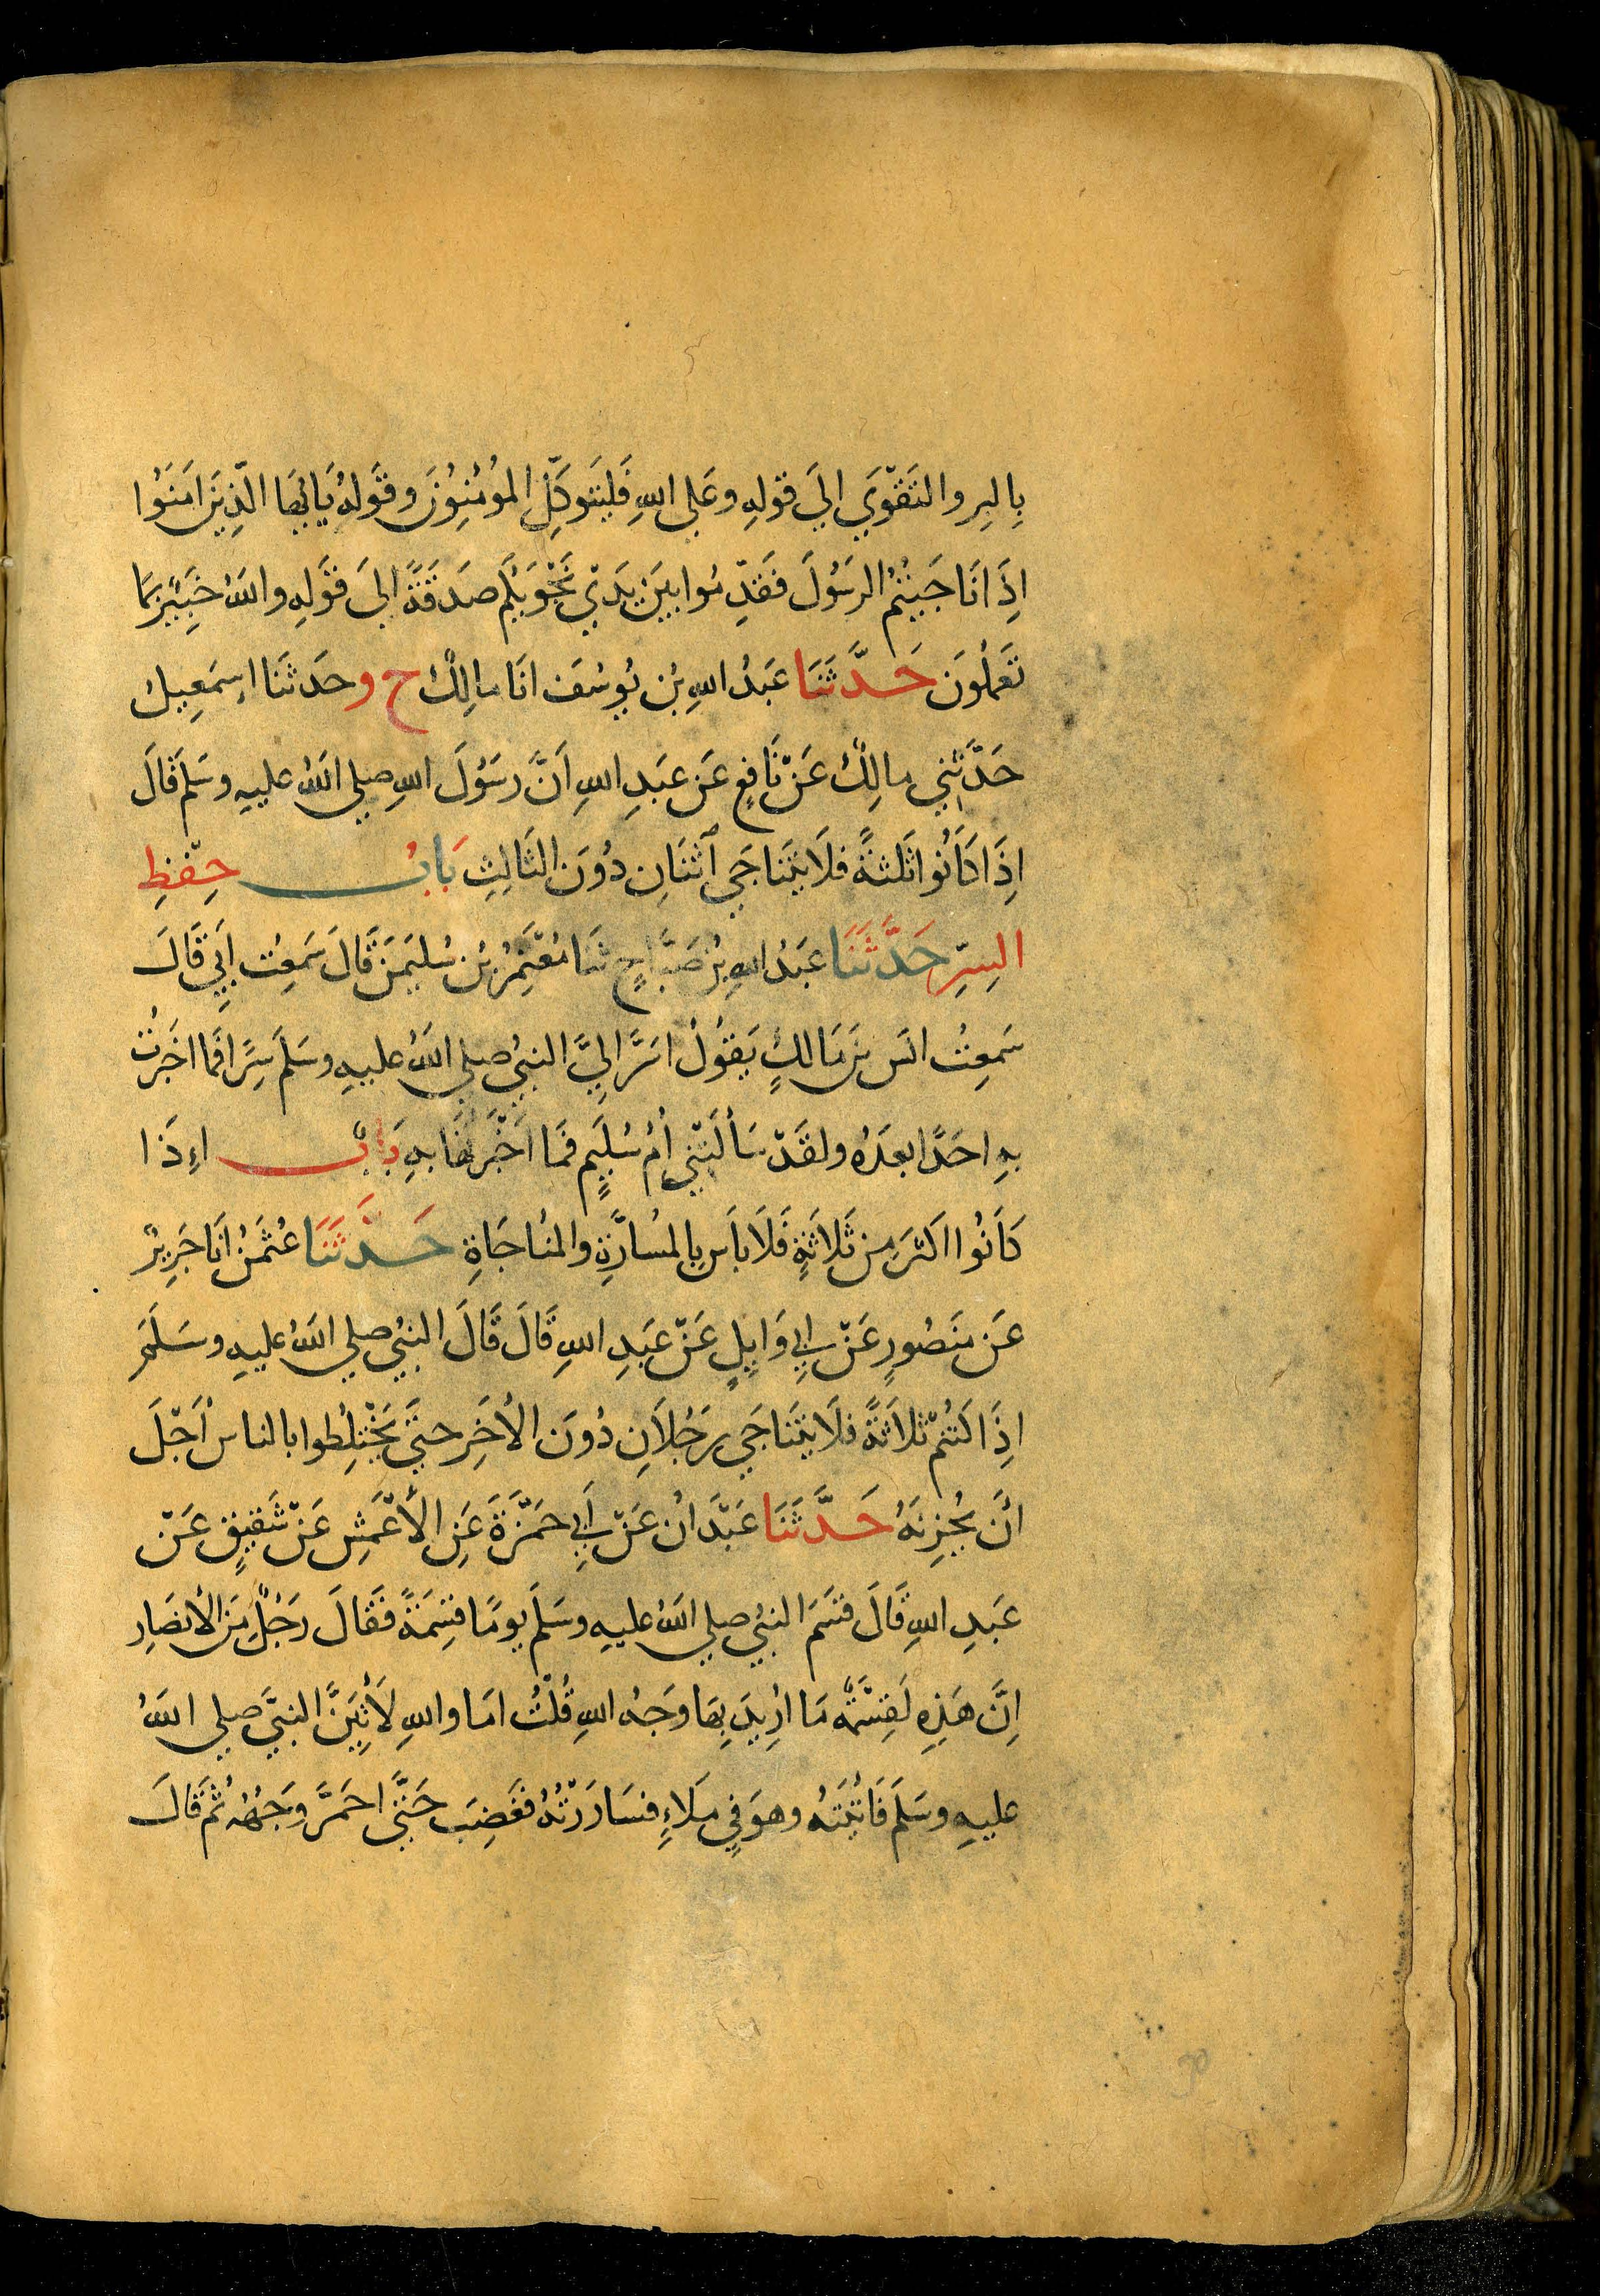 بِالبِر والتَقْوَي اليَ قولِهِ وعَلي اللهِ فَليَتَوكَّلِ المُؤمِنُونَ وقَولُهُ يَايُّهَا الّذِينَ امَنَوُا
اِذَا نَاجَيتُمُ الرسُولَ فَقَدِّمُوا بيَنَ يَدَيْ نَجْوَيكُم صَدَقَةً اليَ قَولِهِ واللهُ خَبِيْرٌ بمَا
تَعمَلُونَ حَدَّثَنَا عَبدُ اللهِ بْنُ يُوسُفَ انَا مالِكٌ ح وحَدثَنَا اسِمَعِيلُ
حَدَّثَنِي مالِكٌ عَنْ نَافِعٍ عَن عَبدِ اللهِ اَنَّ رسَوُلَ اللهِ صلي اللهُ عليهِ وسَلم قَالَ
اِذَا كَانُوا ثَلثةً فلَا يَتَنَاجَي اثنَانِ دُونَ الثَالِثِ بَابُ حِفْظِ
السِرِّ حَدَّثَنَا عَبدُ اللهِ بْنُ صَبَّاحٍ ثنا مُعْتَمِرُ بْنُ سُليمَنَ قَالَ سَمِعتُ اَبِي قَالَ
سَمِعتُ انَس بنَ مَالكٍ يَقوُلُ اسَرَّ اليَّ النبيُ صلي اللهُ عليهِ وسَلمَ سِرًّا فَما اخبَرتُ
بهِ احَدًا بعَدَهُ ولقَدْ سَألَتْنِي أمُ سُلَيمٍ فَمَا اخبَرْتُهَا بهِ بَابٌ اِذَا
كَانُوا اكثَرَ مِن ثَلاثَةٍ فَلَا باَس بِالمُسارَّةِ والمُناجَاةِ حَدَّثَنَا عُثمَنُ انَا جَرِيرٌ
عَن مَنصُورٍ عَنْ ابِي وَايِلٍ عَنْ عَبدِ اللهِ قَالَ قَالَ النبيُ صلي اللهُ عليهِ وسَلَمَ
اِذَا كَنُتمْ ثلَاثةً فلَا يَتَنَاجَي رجُلَانِ دُونَ الأَخَرِ حتيَّ تَخْتلِطُوا بالناس أجْلَ
انَ يُحزِنَهُ حَدَّثَنَا عَبْدَانُ عَنْ اَبِي حَمْزَةَ عَنِ الأَعْمَشِ عَنْ شَقِيقٍ عَنْ
عَبدِ اللهِ قَالَ قسَمَ النبيُ صلي اللهُ عليهِ وسَلمَ يومًا قِسمَةً فَقالَ رجُلٌ مِنَ الأنصَارِ
اِنَّ هَذِهِ لَقِسْمَةٌ مَا ارُيِدَ بِهَا وجَهُ اللهِ قُلْتُ امَا واللهِ لَأتِيَنَّ النبيَّ صلي اللهُ
عليهِ وسَلمَ فَاتَيتُهُ وهوَ فِي مَلاءٍ فسَارَرْتُهُ فَغَضِبَ حَتيَّ احمَرَّ وجَهُهُ ثُمَّ قَالَ